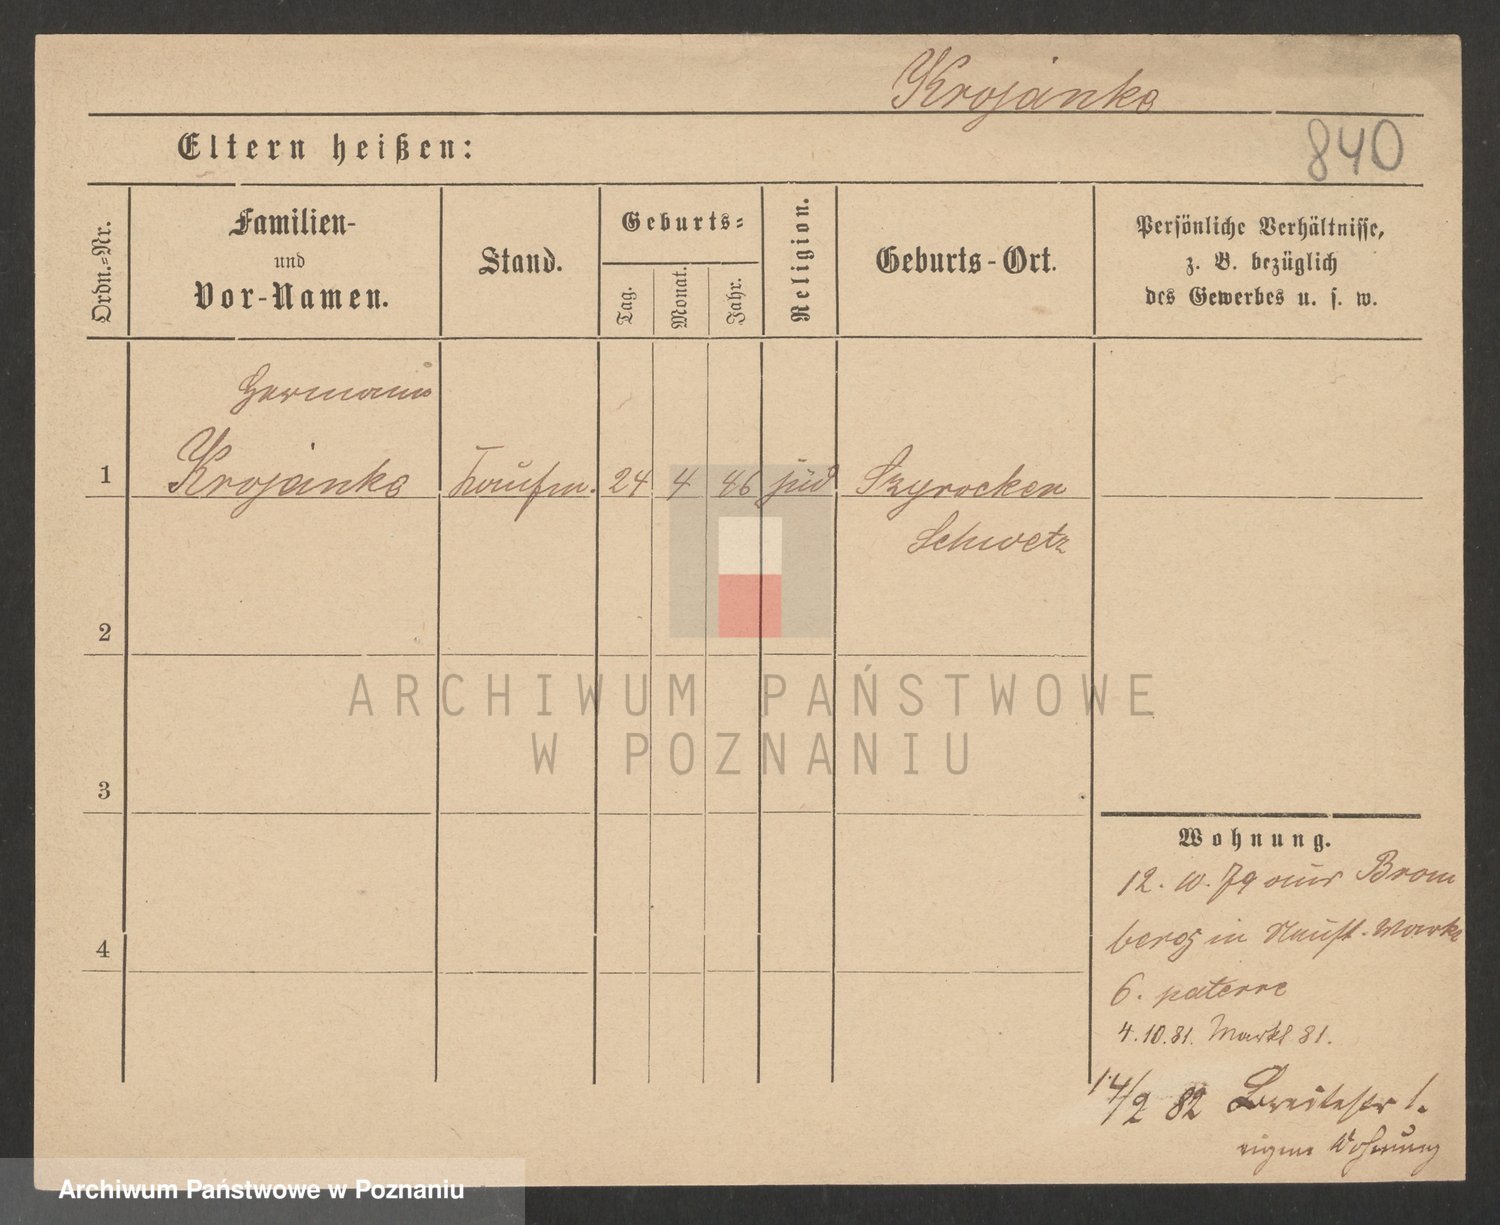 Krojanke
840
Eltern heißen:
Ordn.-Nr.
Familien-
und
Vor-Namen.
Stand.
Geburts-
Tag.
Monat.
Jahr.
Religion.
Geburts-Ort.
Persönliche Verhältnisse,
z. B. bezüglich
des Gewerbes u. s. w.
Hermann
1 Krojanke Kaufm. 24 4 46 jüd
Schwetz
2
ARCHIWUM PAŃSTWOWE
W POZNANIU
3
Wohnung.
12. 10. 79 aus Brom
berg in Markt
6. paterre
4
4. 10. 81. Markt 81.
14/2 82 Breitestr 1.
eigene Wohnung
Archiwum Państwowe w Poznaniu